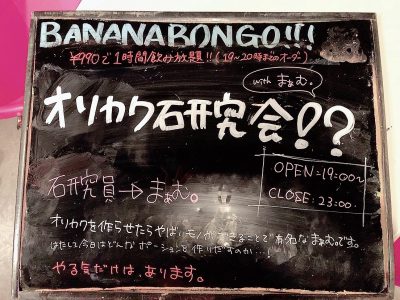 BANANABONGO!!!
¥990で1時間飲み放題!!(19~20時までのオーダー)
with まぁむ。
オリカク石研究会!?
OPEN=19:00~
CLOSE:23:00.
石研究員→まぁむ。
オリカクを作らせたらやばいモノができることで有名なまぁむです。
はたして今日はどんなポーションを作りだすのか…!
やる気だけは、あります。